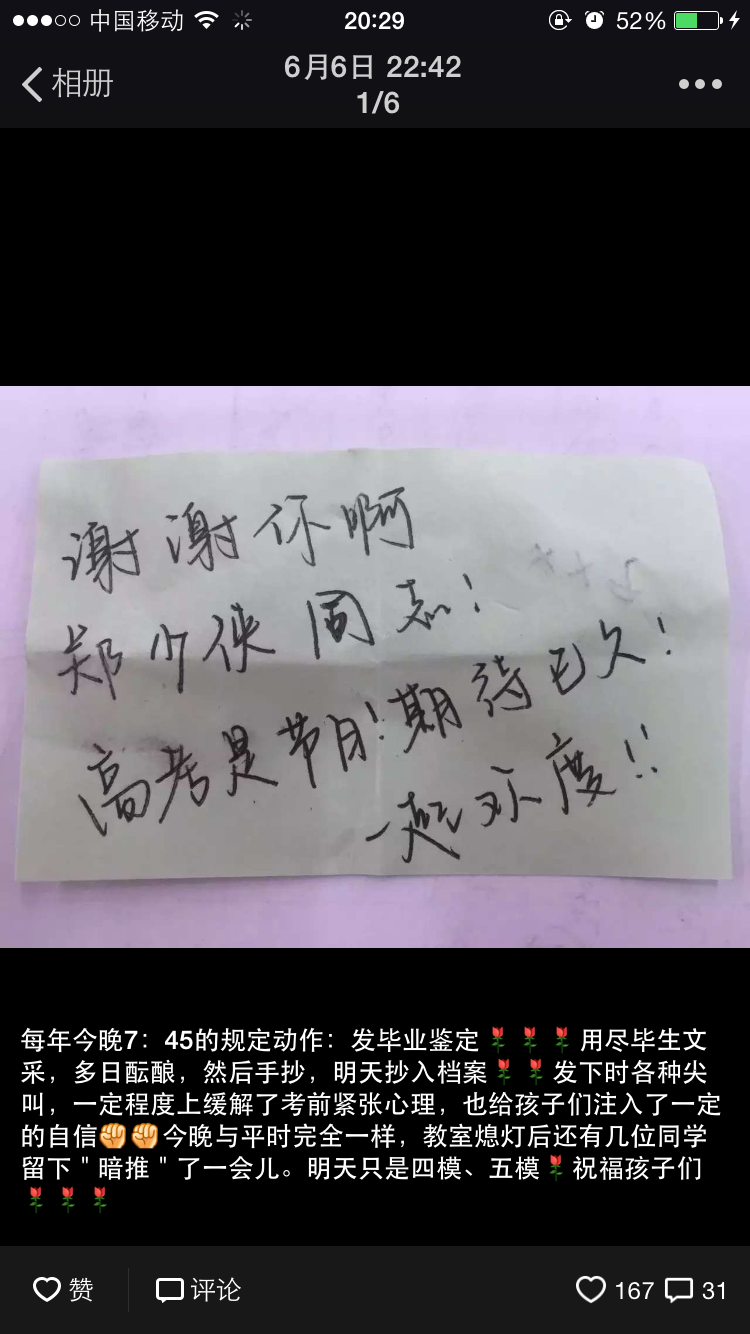 中国移动 20:29 52%
相册 6月6日 22:42
1/6
谢谢你啊
郑少侠同志！
高考是节日！期待已久！
一起欢度！！
每年今晚7：45的规定动作：发毕业鉴定🌹🌹🌹用尽毕生文
采，多日酝酿，然后手抄，明天抄入档案🌹🌹发下时各种尖
叫，一定程度上缓解了考前紧张心理，也给孩子们注入了一定
的自信✊✊今晚与平时完全一样，教室熄灯后还有几位同学
留下＂暗推＂了一会儿。明天只是四模、五模🌹祝福孩子们
🌹🌹🌹
赞 评论 167 31